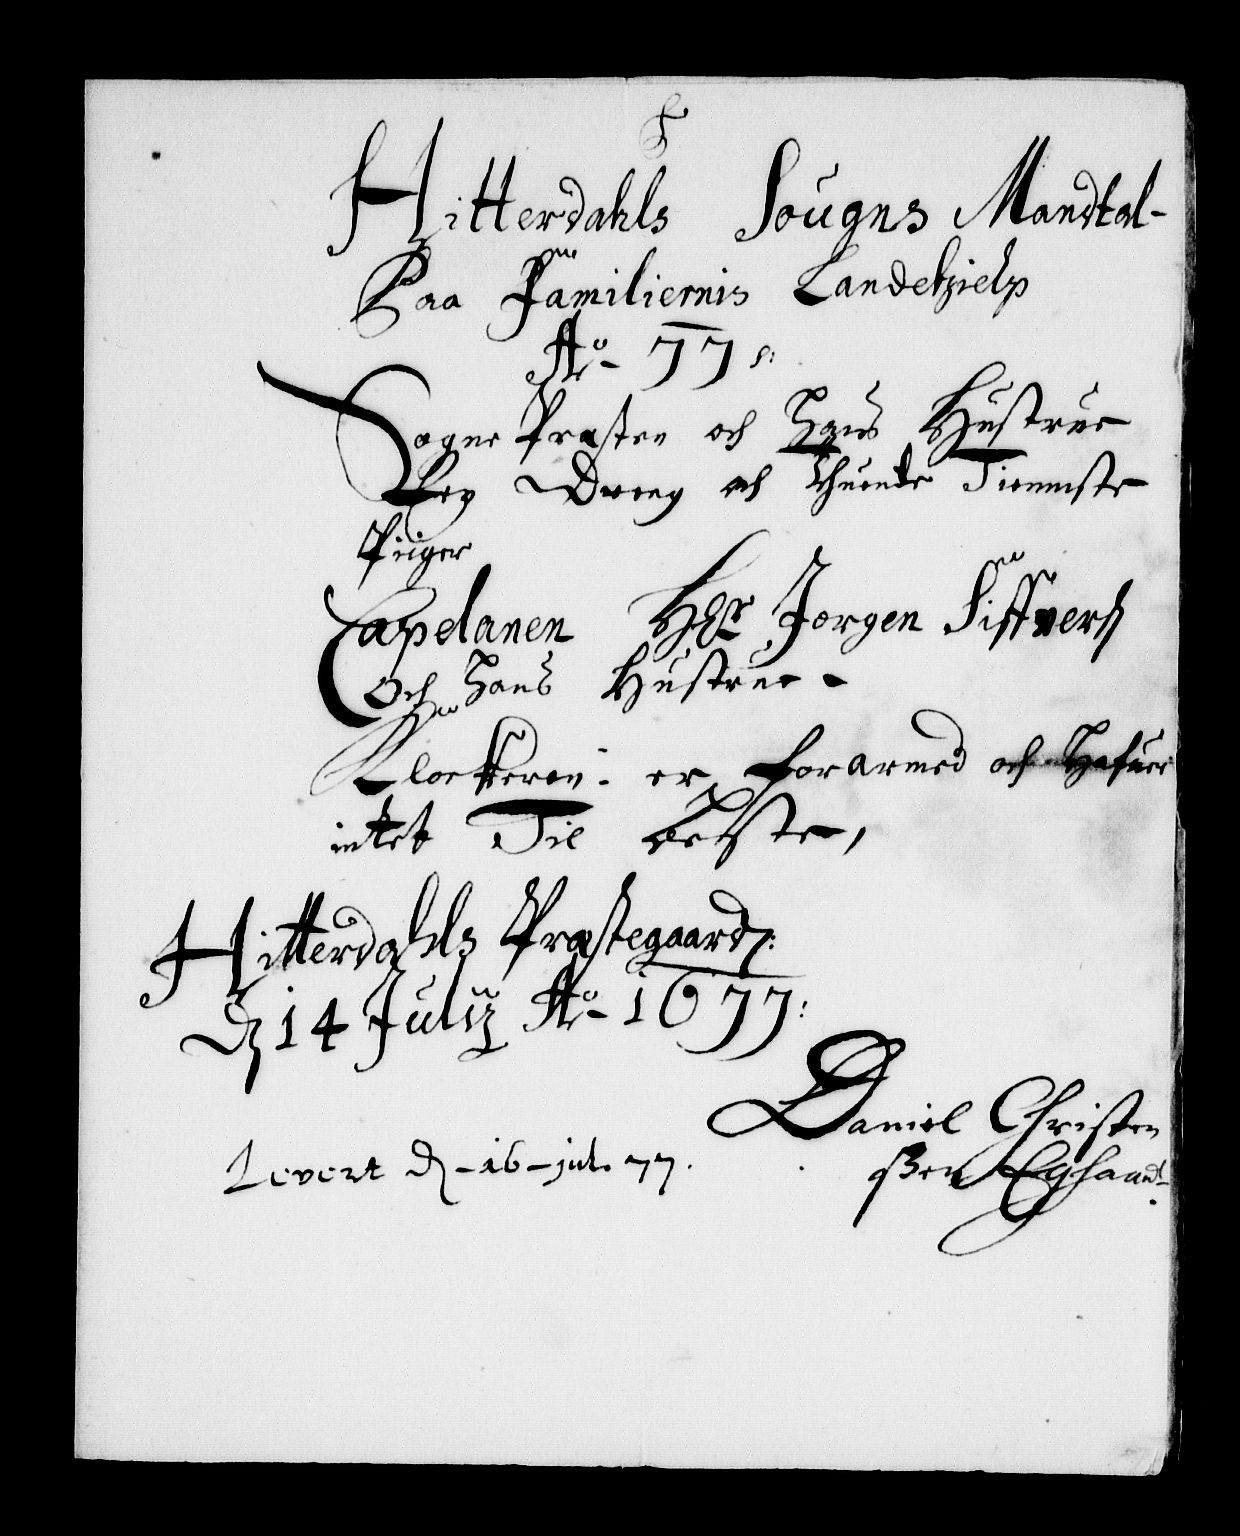 Hitterdahls Sougns Mandtal-
Paa Familiernis Landehielp
Ao- 77 s:
Sogne Præsten och Hans Hustrue
Een Dreng och Thuende Tienniste
Piiger
Capelanen Her Jørgen Siffvers
Och Hans Hustrue -
Klockeren: er forarmed och Hafuer
intet Til beste,
Hitterdahls Præstegaard:
d 14 Julij Ao- 1677:
Daniel Christen
ßen
Levert d -16- jul. 77.